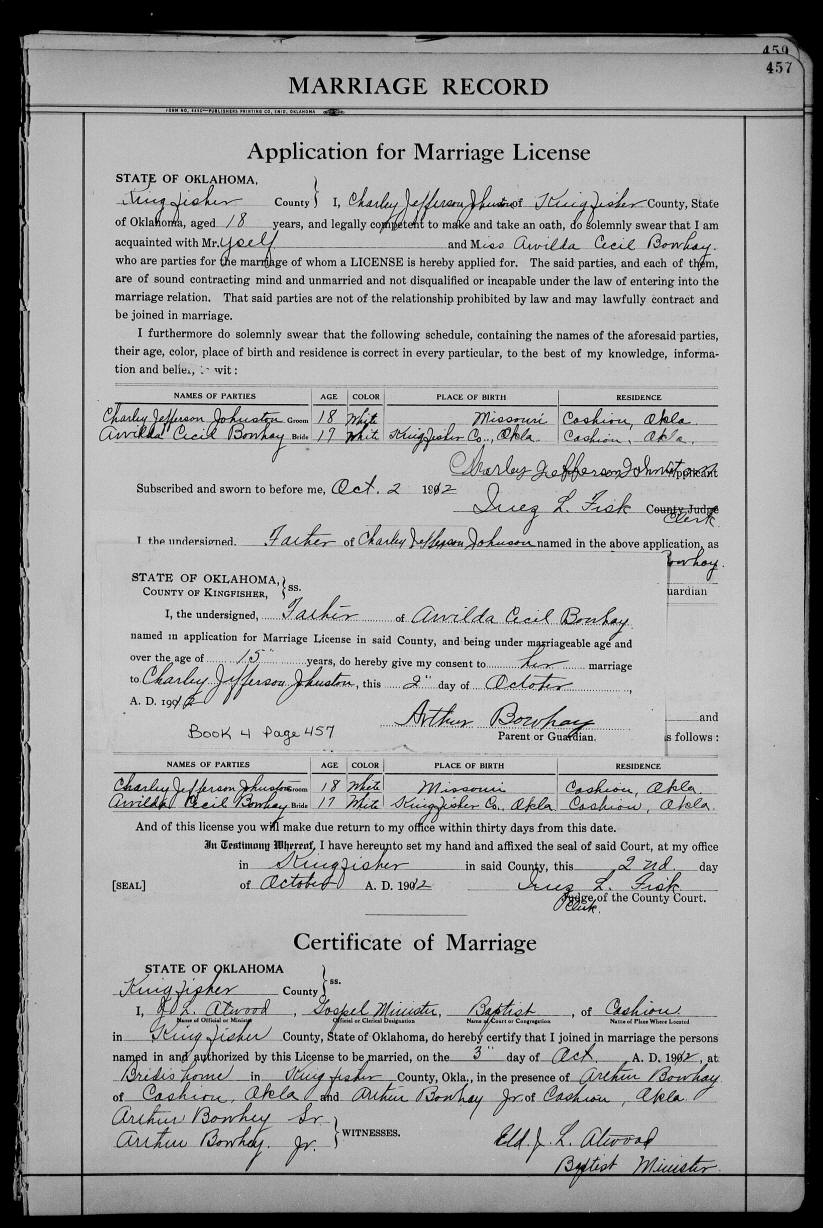 459
457
MARRIAGE RECORD
FORM NO. 4490—PUBLISHERS PRINTING CO., ENID, OKLAHOMA
Application for Marriage License
STATE OF OKLAHOMA,
Kingfisher County } I, Charley Jefferson Johnston of Kingfisher County, State
of Oklahoma, aged 18 years, and legally competent to make and take an oath, do solemnly swear that I am
acquainted with Mr. yself and Miss Arvilda Cecil Bowhay.
who are parties for the marriage of whom a LICENSE is hereby applied for. The said parties, and each of them,
are of sound contracting mind and unmarried and not disqualified or incapable under the law of entering into the
marriage relation. That said parties are not of the relationship prohibited by law and may lawfully contract and
be joined in marriage.
I furthermore do solemnly swear that the following schedule, containing the names of the aforesaid parties,
their age, color, place of birth and residence is correct in every particular, to the best of my knowledge, informa-
tion and belief, to wit:
NAMES OF PARTIES AGE COLOR PLACE OF BIRTH RESIDENCE
Charley Jefferson Johnston Groom 18 White Missouri Cashion, Okla.
Arvilda Cecil Bowhay Bride 17 White Kingfisher Co., Okla. Cashion, Okla.
Charley Jefferson Johnston Applicant
Subscribed and sworn to before me, Oct. 2 1912
Inez L. Fisk County Judge
Clerk.
I the undersigned, Father of Charley Jefferson Johnson named in the above application, as
Bowhay.
uardian
STATE OF OKLAHOMA,
COUNTY OF KINGFISHER, } ss.
I, the undersigned, Father of Arvilda Cecil Bowhay
named in application for Marriage License in said County, and being under marriageable age and
over the age of 15 years, do hereby give my consent to her marriage
to Charley Jefferson Johnston, this 2" day of October,
A. D. 1912
Arthur Bowhay
Parent or Guardian.
Book 4 Page 457
and
s follows:
NAMES OF PARTIES AGE COLOR PLACE OF BIRTH RESIDENCE
Charley Jefferson Johnston Groom 18 White Missouri Cashion, Okla.
Arvilda Cecil Bowhay Bride 17 White Kingfisher Co., Okla Cashion, Okla.
And of this license you will make due return to my office within thirty days from this date.
In Testimony Whereof, I have hereunto set my hand and affixed the seal of said Court, at my office
in Kingfisher in said County, this 2nd day
[SEAL] of October A. D. 1912 Inez L. Fisk
Judge of the County Court.
Clerk.
Certificate of Marriage
STATE OF OKLAHOMA
Kingfisher County } ss.
I, J. L. Atwood, Gospel Minister, Baptist, of Cashion.
Name of Official or Minister Official or Clerical Designation Name of Court or Congregation Name of Place Where Located
in Kingfisher County, State of Oklahoma, do hereby certify that I joined in marriage the persons
named in and authorized by this License to be married, on the 3" day of Oct. A. D. 1912, at
Brides home in Kingfisher County, Okla., in the presence of Arthur Bowhay
of Cashion, Okla and Arthur Bowhay Jr. of Cashion, Okla.
Arthur Bowhey Sr.
Arthur Bowhay. Jr. } WITNESSES.
Eld. J. L. Atwood
Baptist Minister.